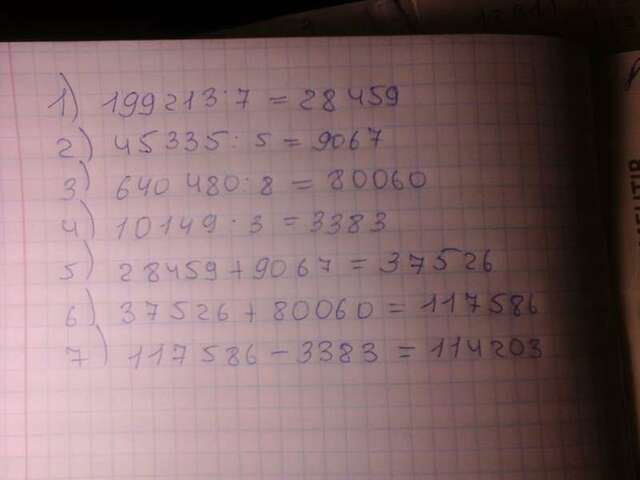 1) 199213:7 = 28459
2) 45335:5 = 9067
3) 640480:8 = 80060
4) 10149:3 = 3383
5) 28459+9067 = 37526
6) 37526+80060 = 117586
7) 117586-3383 = 114203